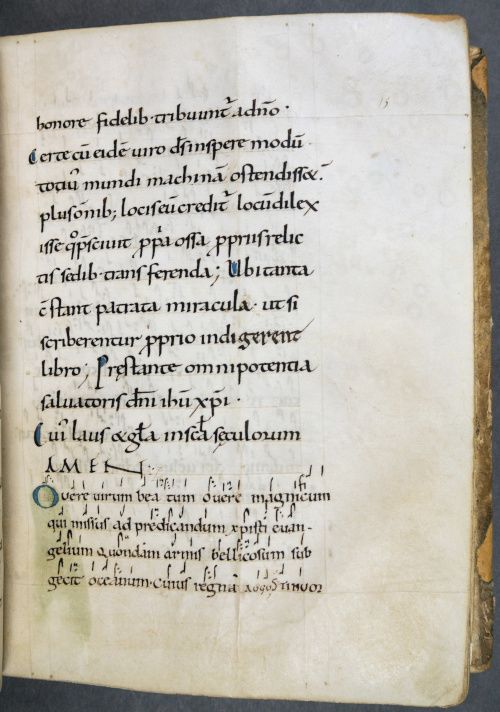 15
honore fidelib· tribuunt᷑ a dn̄o ·
Certe cū eidē viro d̄s inspere modū
totiꝰ mundi machinā ostendisset
plus om̄ib; locis eū credit᷑ locū dilex
isse q° p̄scivit ꝓpa ossa ꝓpriis relic
tis sedib· transferenda; Ubi tanta
c̄stant patrata miracula· ut si
scriberentur ꝓprio indigerent
libro; Prestante omnipotentia
salvatoris dn̄i ihū xp̄i ·
Cui laus & gl̄a in sc̄la sęculorum
AMEN:
O vere virum beatum o vere magnificum
qui missus ad predicandum xpisti evan-
gelium quondam armis bellicosum sub
gecit oceanum· cuius regna